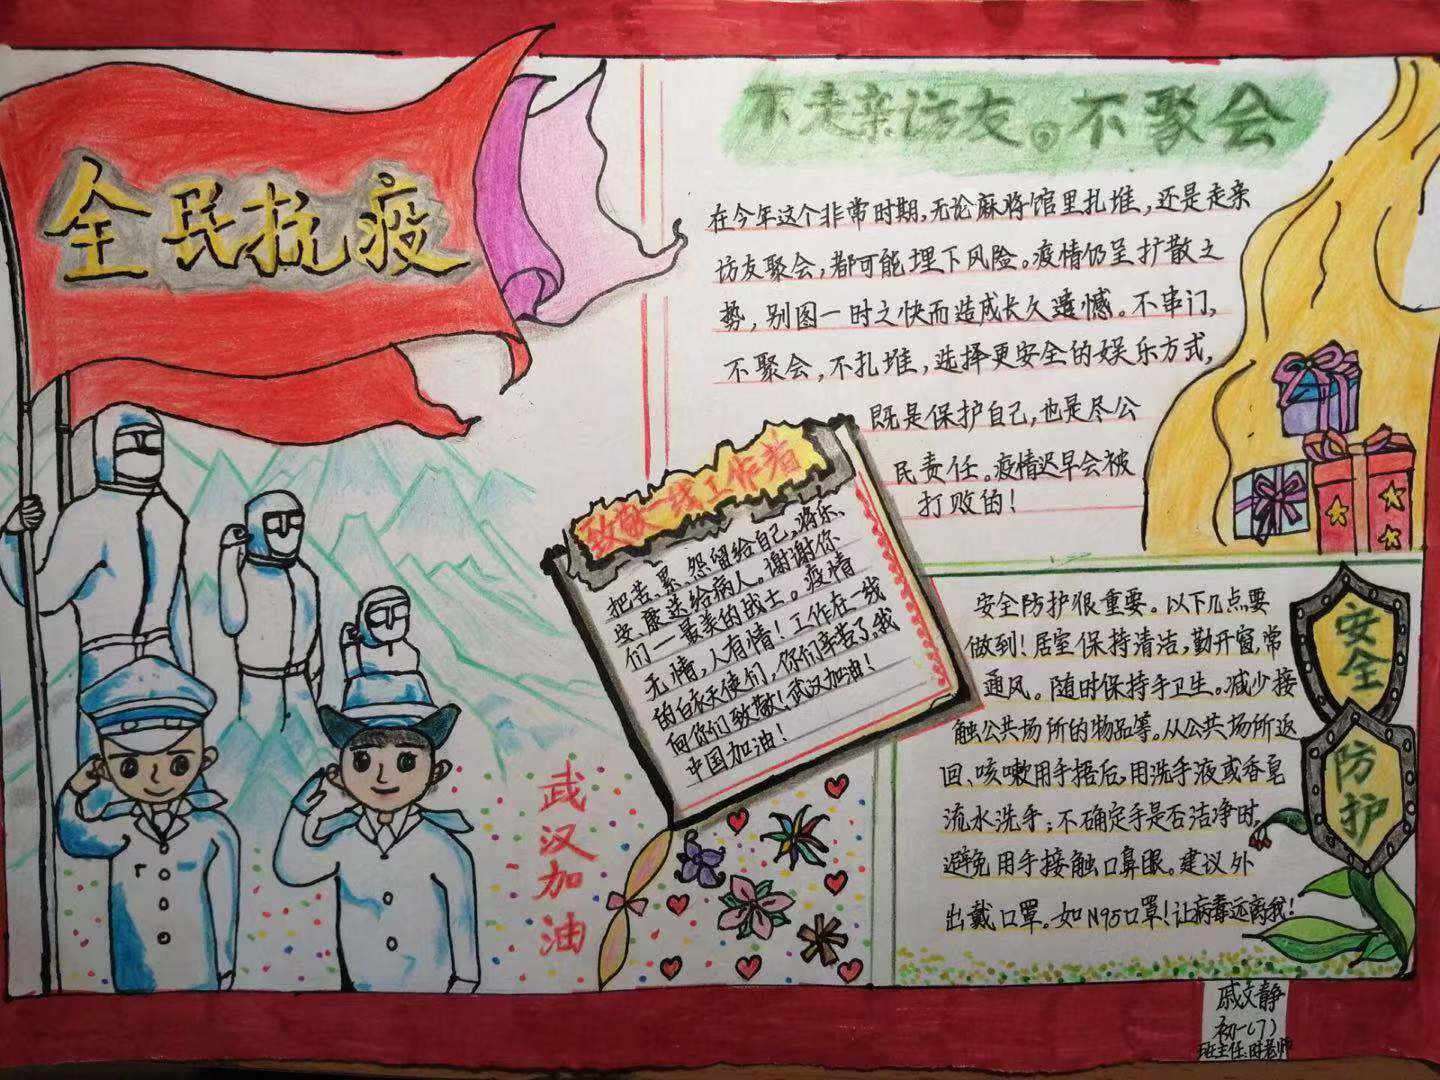 全民抗疫
不走亲访友。不聚会
在今年这个非常时期,无论麻将馆里扎堆,还是走亲
访友聚会,都可能埋下风险。疫情仍呈扩散之
势,别图一时之快而造成长久遗憾。不串门,
不聚会,不扎堆,选择更安全的娱乐方式,
既是保护自己,也是尽公
民责任。疫情迟早会被
打败的!
致敬一线工作者
把苦、累、怨留给自己,将乐、
安、康送给病人。谢谢你
们一一最美的战士。疫情
无情,人有情!工作在一线
的白衣天使们,你们辛苦了,我
向你们致敬!武汉加油!
中国加油!
武汉加油
安全防护很重要。以下几点要
做到!居室保持清洁,勤开窗,常
通风。随时保持手卫生。减少接
触公共场所的物品等。从公共场所返
回、咳嗽用手捂后,用洗手液或香皂
流水洗手;不确定手是否洁净时,
避免用手接触口鼻眼。建议外
出戴口罩。如N95口罩!让病毒远离我!
安全
防护
戚文静
初一(7)
班主任:时老师